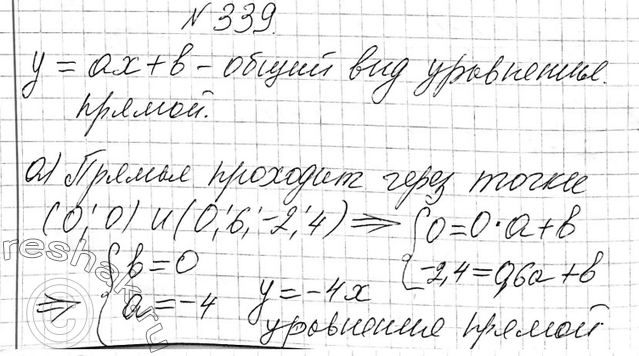 №339.
y = ax + b - общий вид уравнения
прямой.
а) Прямая проходит через точки
(0; 0) и (0,6; -2,4) ⇒ { 0 = 0 · a + b
{ b = 0 -2,4 = 0,6a + b
⇒ a = -4 y = -4x
уравнение прямой
reshak.ru